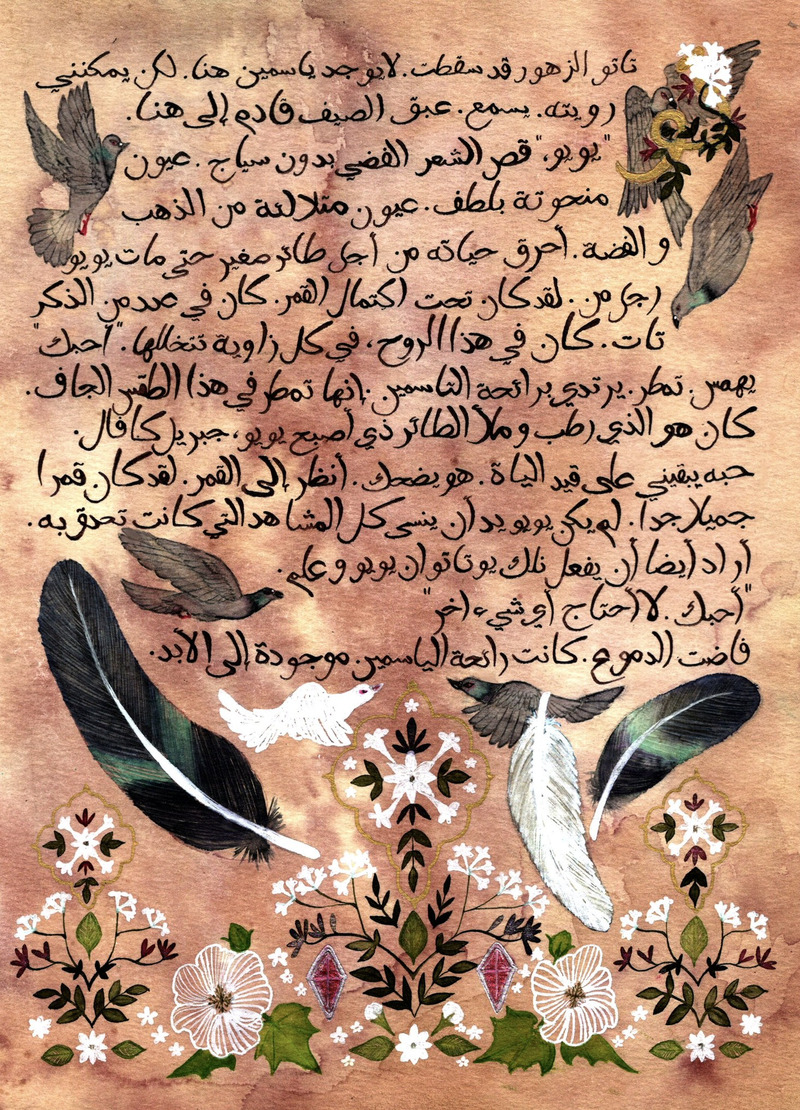 تاتو الزهور قد سقطت. لا يوجد ياسمين هنا. لكن يمكنني
رويته. يسمع. عبق الصيف قادم إلى هنا.
"يويو،" قص الشعر الفضي بدون سياج. عيون
منحوتة بلطف. عيون متلالئة من الذهب
و الفضة. أحرق حياته من أجل طائر صغير حتى مات يويو
رجل من. لقد كان تحت اكتمال القمر. كان في عدد من الذكر
تات. كان في هذا الروح، في كل زاوية تتخللها. "أحبك"
يهمس. تمطر. يرتدي برائحة التاسمين. إنها تمطر في هذا الطقس الجاف.
كان هو الذي رطب و ملأ الطائر ذي أصبح يويو، جبريل كا قال.
حبه يبقيني على قيد الياة. هو يضحك. أنظر إلى القمر. لقد كان قمرا
جميلا جدا. لم يكن يويو يد أن ينسى كل المشاهد التي كانت تحدق به.
أراد أيضا أن يفعل نلك يوتاتو ان يويو و علم.
"أحبك. لا أحتاج أي شيء اخر"
فاضت الدموع. كانت رائحة الياسمين. موجودة إلى الأبد.